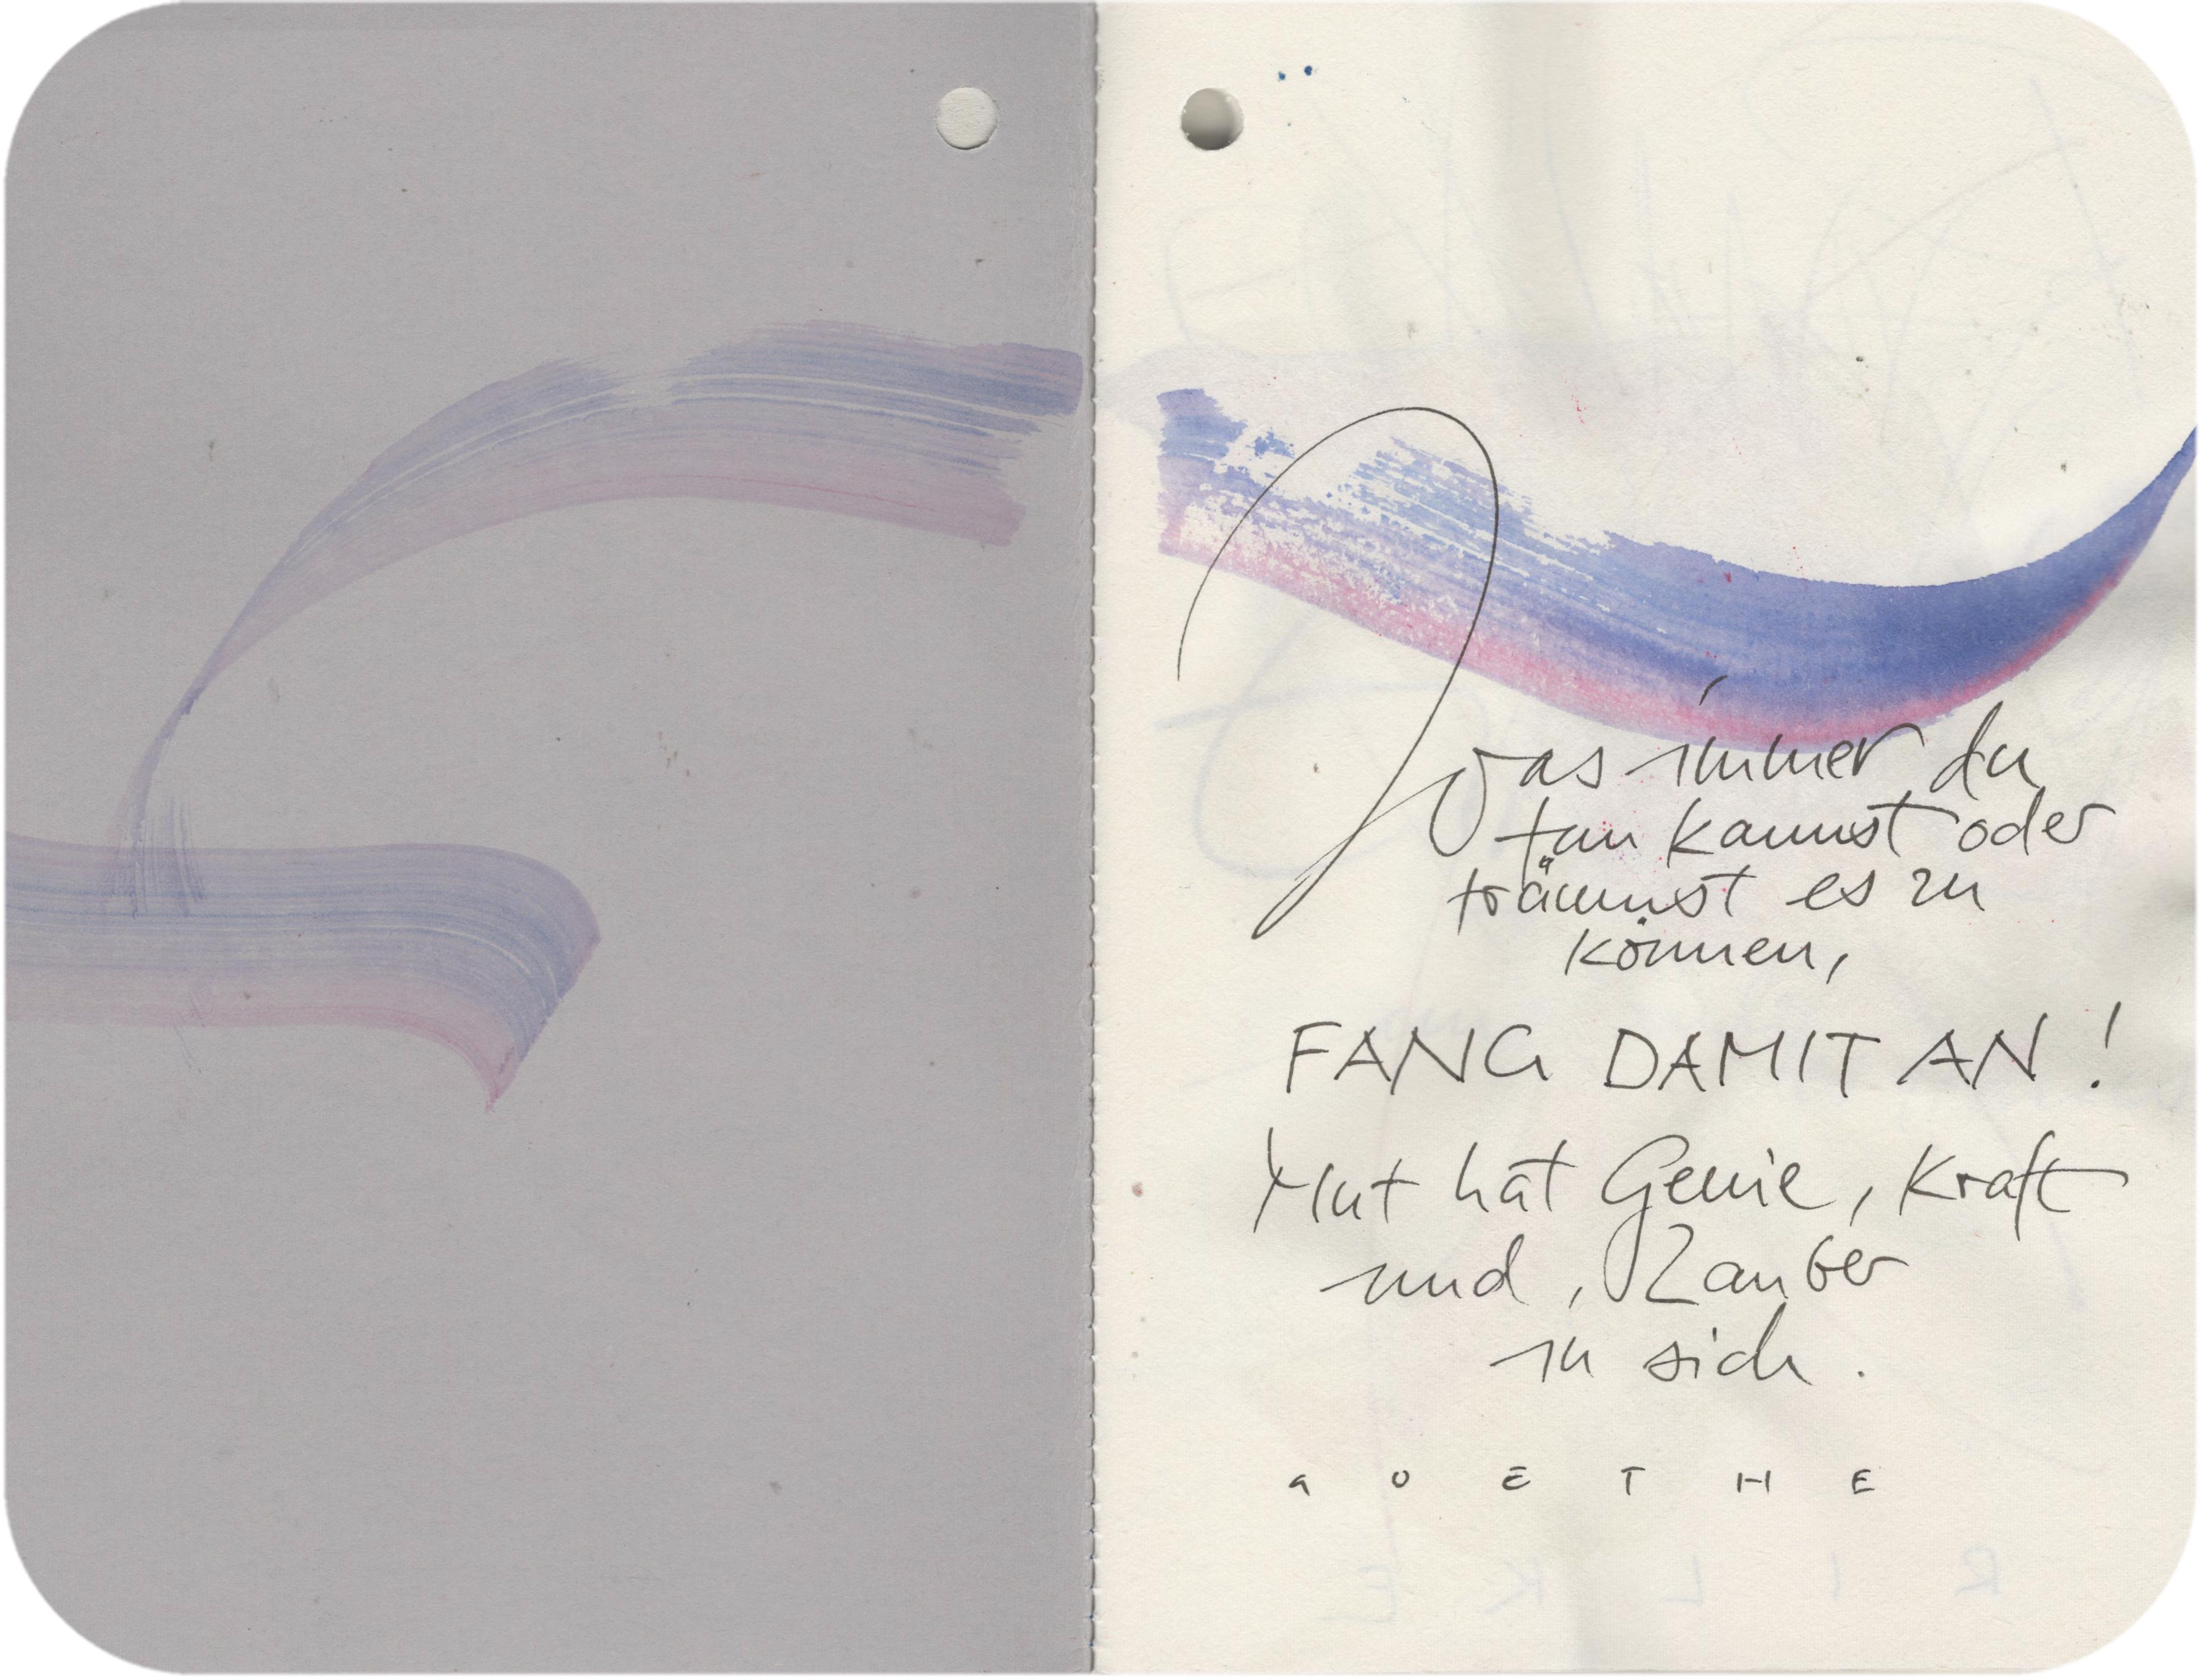 Was immer du
tun kannst oder
träumst es zu
können,
FANG DAMIT AN!
Mut hat Genie, Kraft
und, Zauber
in sich.
GOETHE
RILKE